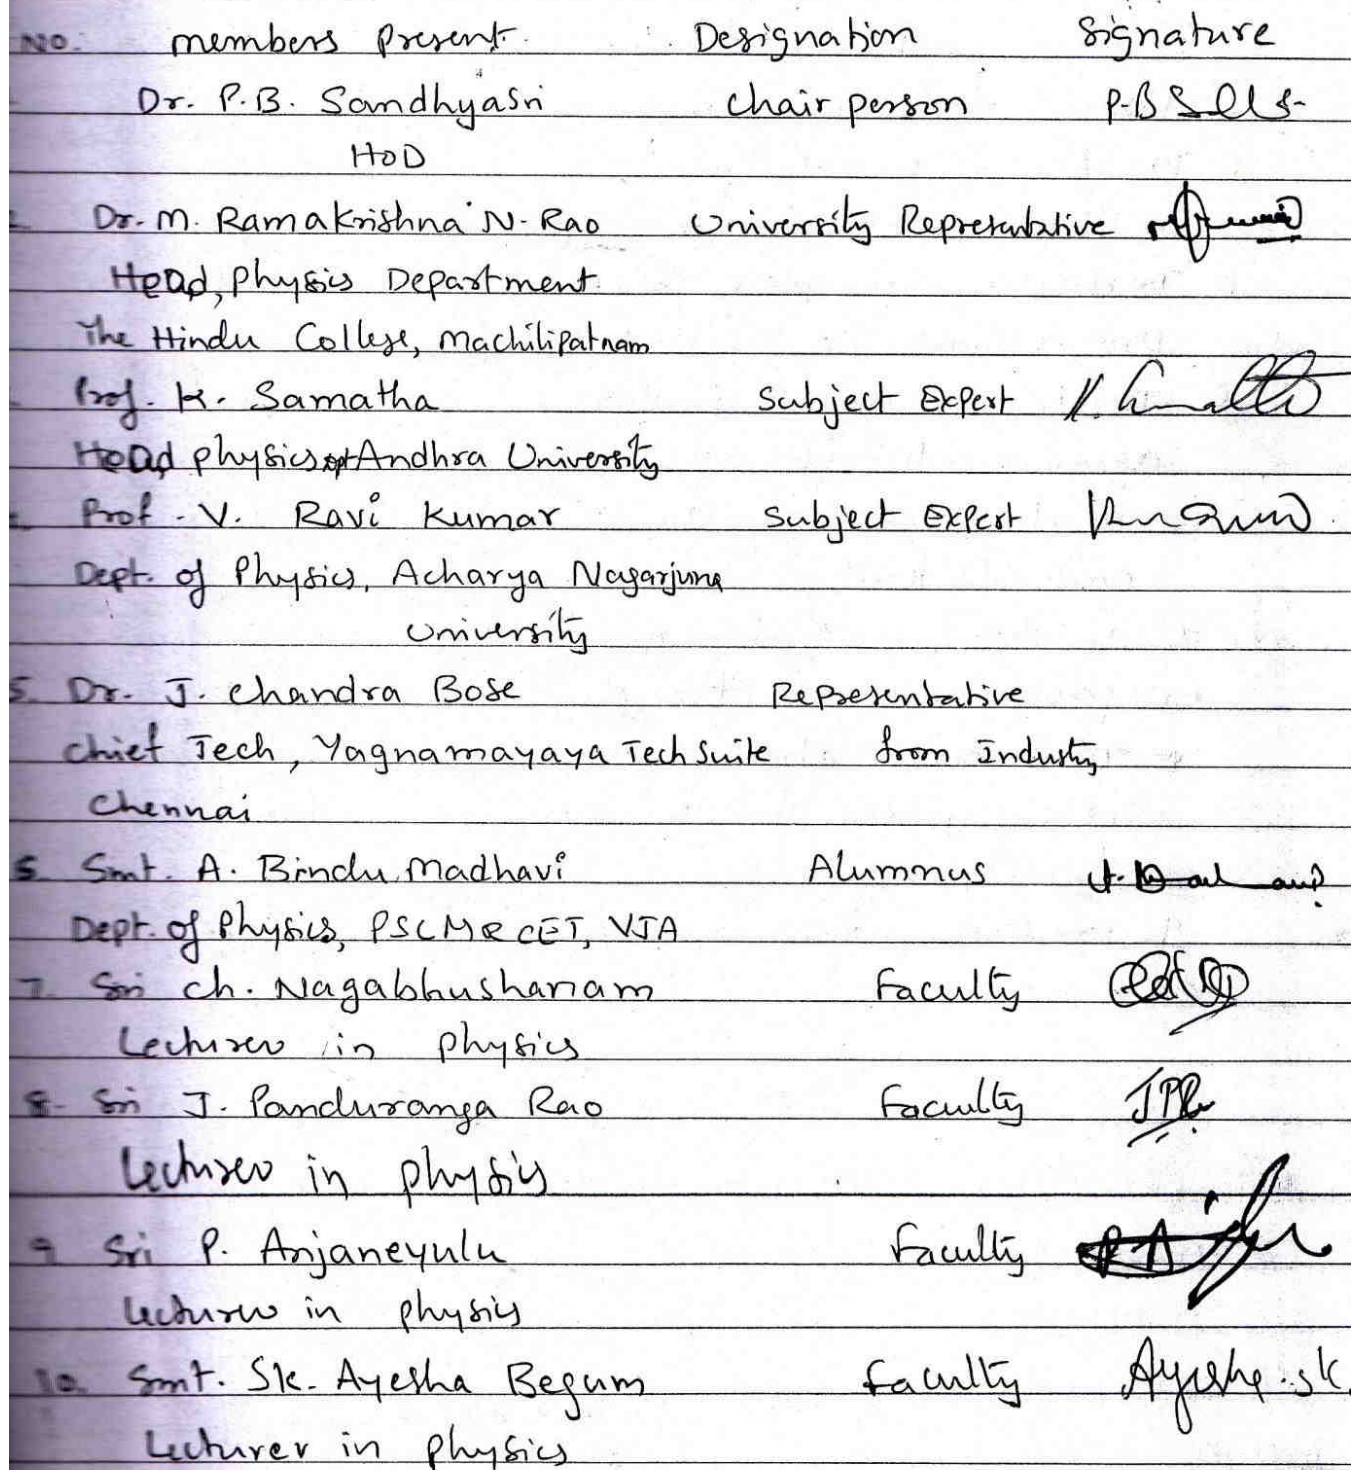 No. members Present. Designation Signature
Dr. P.B. Sandhyasri Chair person P.B
HOD
Dr. M. Ramakrishna N. Rao University Representative
Head, Physics Department
The Hindu College, Machilipatnam
Prof. K. Samatha Subject Expert
Head Physics Andhra University
Prof. V. Ravi Kumar Subject Expert
Dept. of Physics, Acharya Nagarjuna
University
5. Dr. J. Chandra Bose Representative
Chief Tech, Yagnamayaya Tech Suite from Industry
Chennai
6. Smt. A. Bindu Madhavi Alumnus
Dept. of Physics, PSCMRCET, VJA
7. Sri Ch. Nagabhushanam Faculty
Lecturer in physics
8. Sri J. Panduranga Rao Faculty JPR
Lecturer in physics
9. Sri P. Anjaneyulu Faculty
Lecturer in physics
10. Smt. Sk. Ayesha Begum Faculty Ayesha.sk
Lecturer in physics